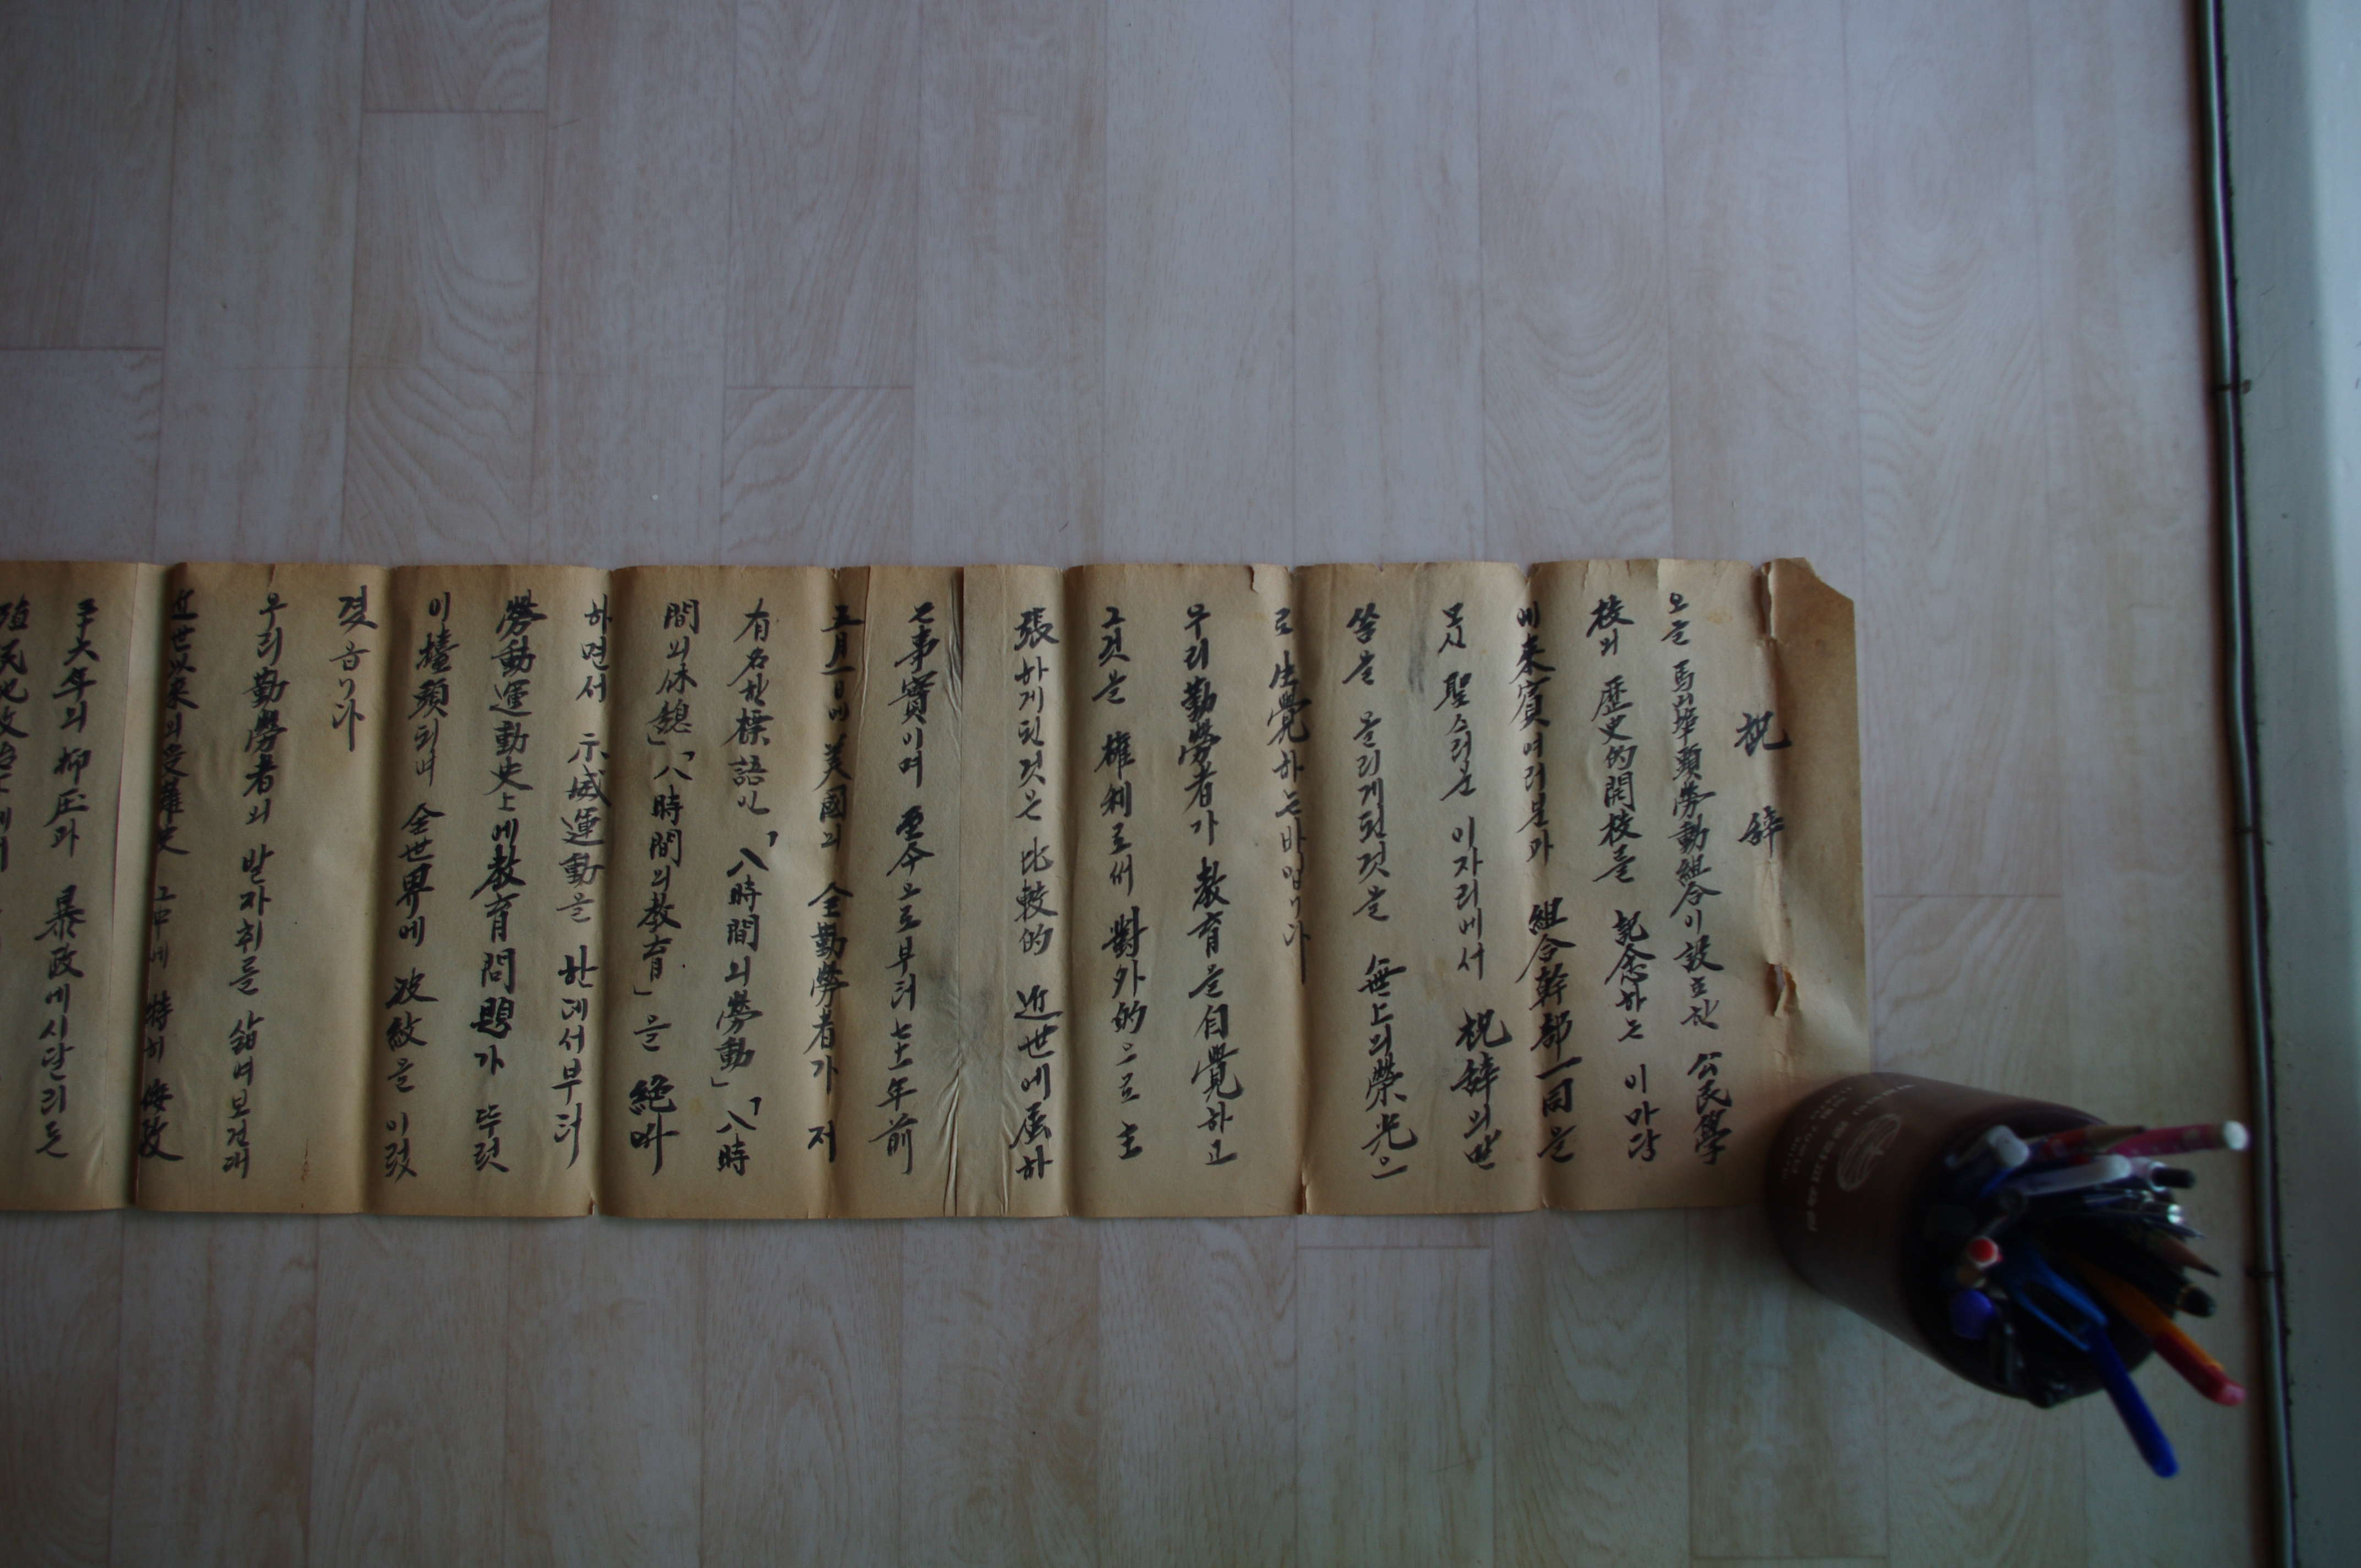 祝辞
오늘 馬山埠頭勞動組合이 設立한 公民學
校의 歷史的開校를 記念하는 이마당
에 來賓여러분과 組合幹部一同을
모신 聖스러운 이자리에서 祝辞의말
씀을 올리게된것을 無上의榮光으
로 生覺하는바입니다
우리勤勞者가 敎育을自覺하고
그것을 權利로써 對外的으로 主
張하게된것은 比較的 近世에屬하
는事實이며 至今으로부터 七十年前
五月一日에 美國의 全勤勞者가 저
有名한標語인「八時間의勞動」「八時
間의休憩」「八時間의敎育」을 絶叫
하면서 示威運動을 한데서부터
勞動運動史上에敎育問題가 뚜렷
이擡頭되며 全世界에 波紋을 이렀
겻읍니다
우리勤勞者의 발자취를 삶여보건대
近世以來의受難史 그中에 特히 倭政
三十六年의 抑圧과 暴政에시달리든
殖民地政治